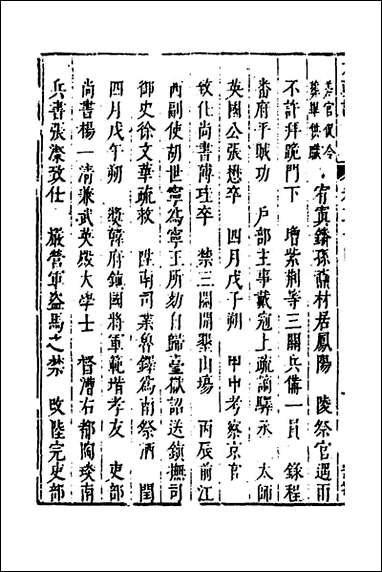 宥寘鐇孫鼒材居鳳陽　陵祭官遇雨
不許拜跪門下　增紫荆等三關兵備一員　錄程
番府平賊功　戶部主事戴冠上疏謫驛丞　太師
英國公張懋卒　四月戊子朔　甲申考察京官
致仕尚書傅珪卒　禁三關開墾山場　丙辰前江
西副使胡世寧爲寧王所劾自歸臺獄詔送鎮撫司
御史徐文華疏救　陞南司業魯鐸爲南祭酒　閏
四月戊午朔　獎韓府鎮國將軍範堦孝友　吏部
尚書楊一清兼武英殿大學士　督漕右都陶琰南
兵書張澯致仕　嚴營軍盜馬之禁　改陸完吏部